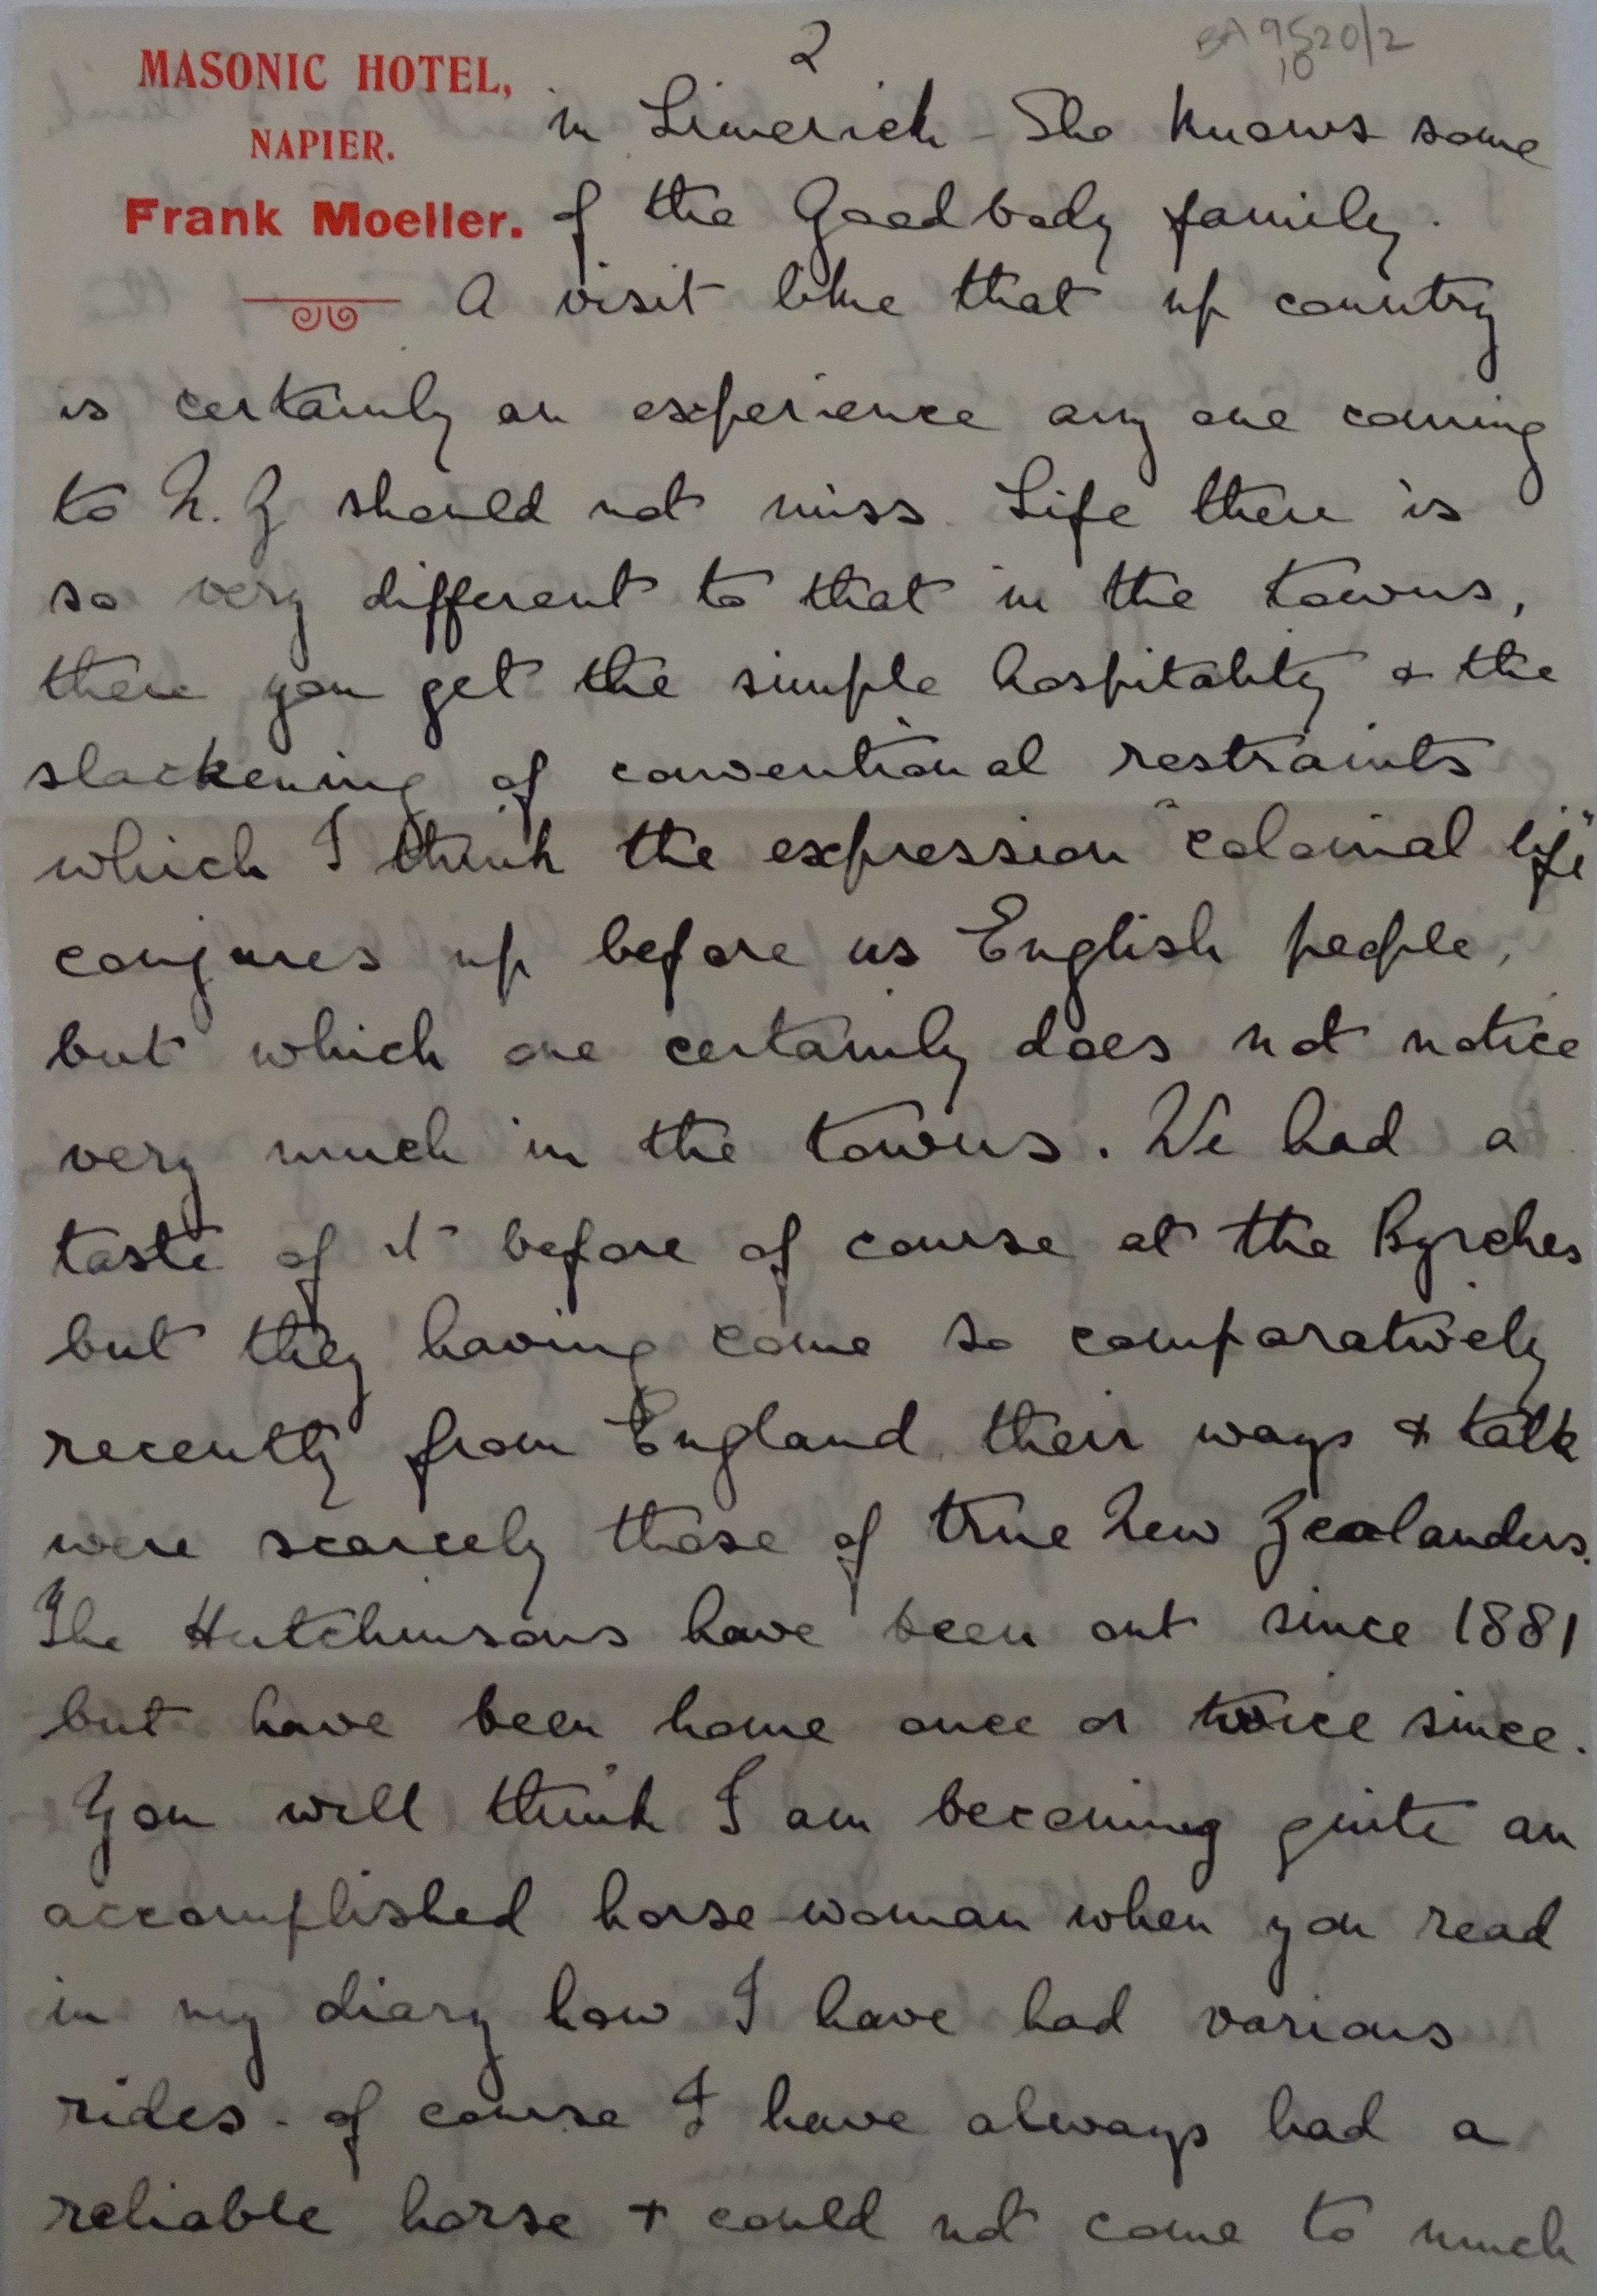 2
BA 9520/2
10
MASONIC HOTEL,
NAPIER.
Frank Moeller.
in Limerick - She knows some
of the Goodbody family.
A visit like that up country
is certainly an experience any one coming
to N. Z should not miss. Life there is
so very different to that in the towns,
there you get the simple hospitality & the
slackening of conventional restraints
which I think the expression "colonial life"
conjures up before us English people,
but which one certainly does not notice
very much in the towns. We had a
taste of it before of course at the Byrches
but they having come so comparatively
recently from England their ways & talk
were scarcely those of true New Zealanders.
The Hutchinsons have been out since 1881
but have been home once or twice since.
You will think I am becoming quite an
accomplished horse-woman when you read
in my diary how I have had various
rides - of course I have always had a
reliable horse & could not come to much